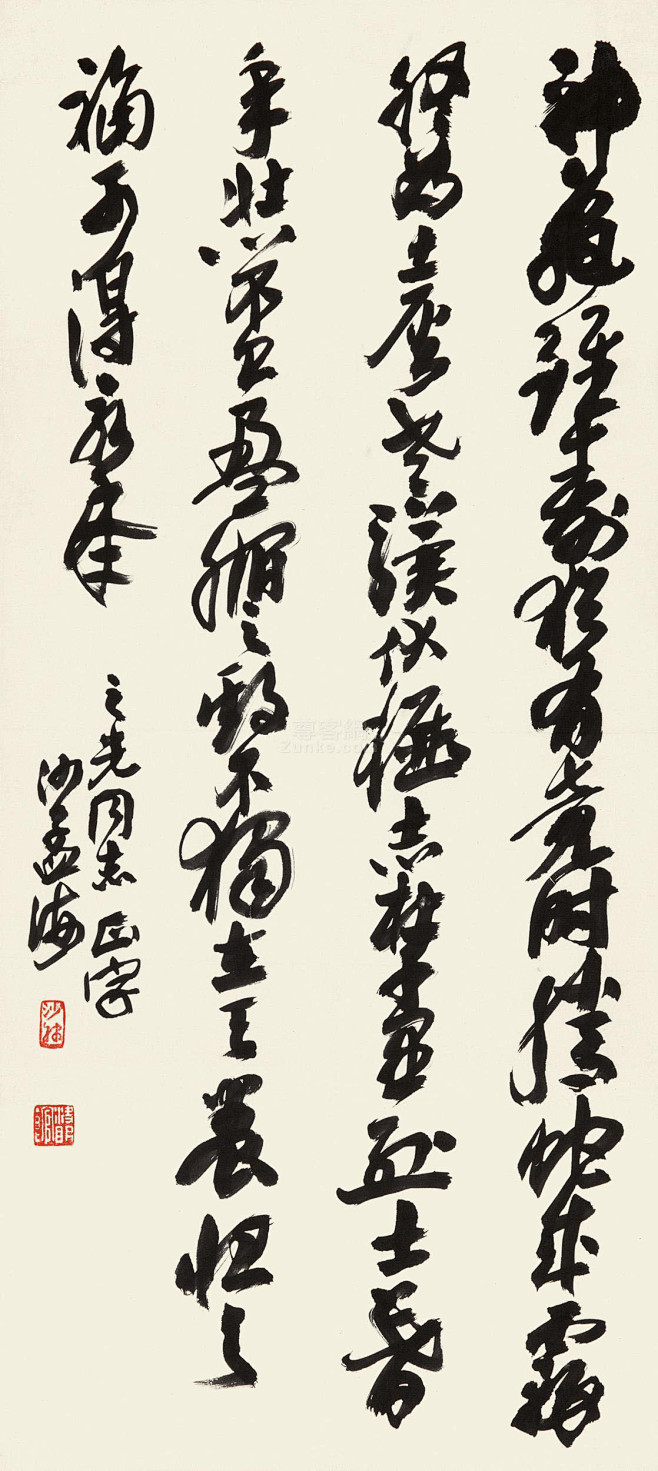 神龜雖壽猶有竟時騰蛇乘霧
終為土灰老驥伏櫪志在千里烈士暮
年壯心不已盈縮之期不獨在天養怡之
福可得永年
之光同志正字
沙孟海
沙村
Zunka.com